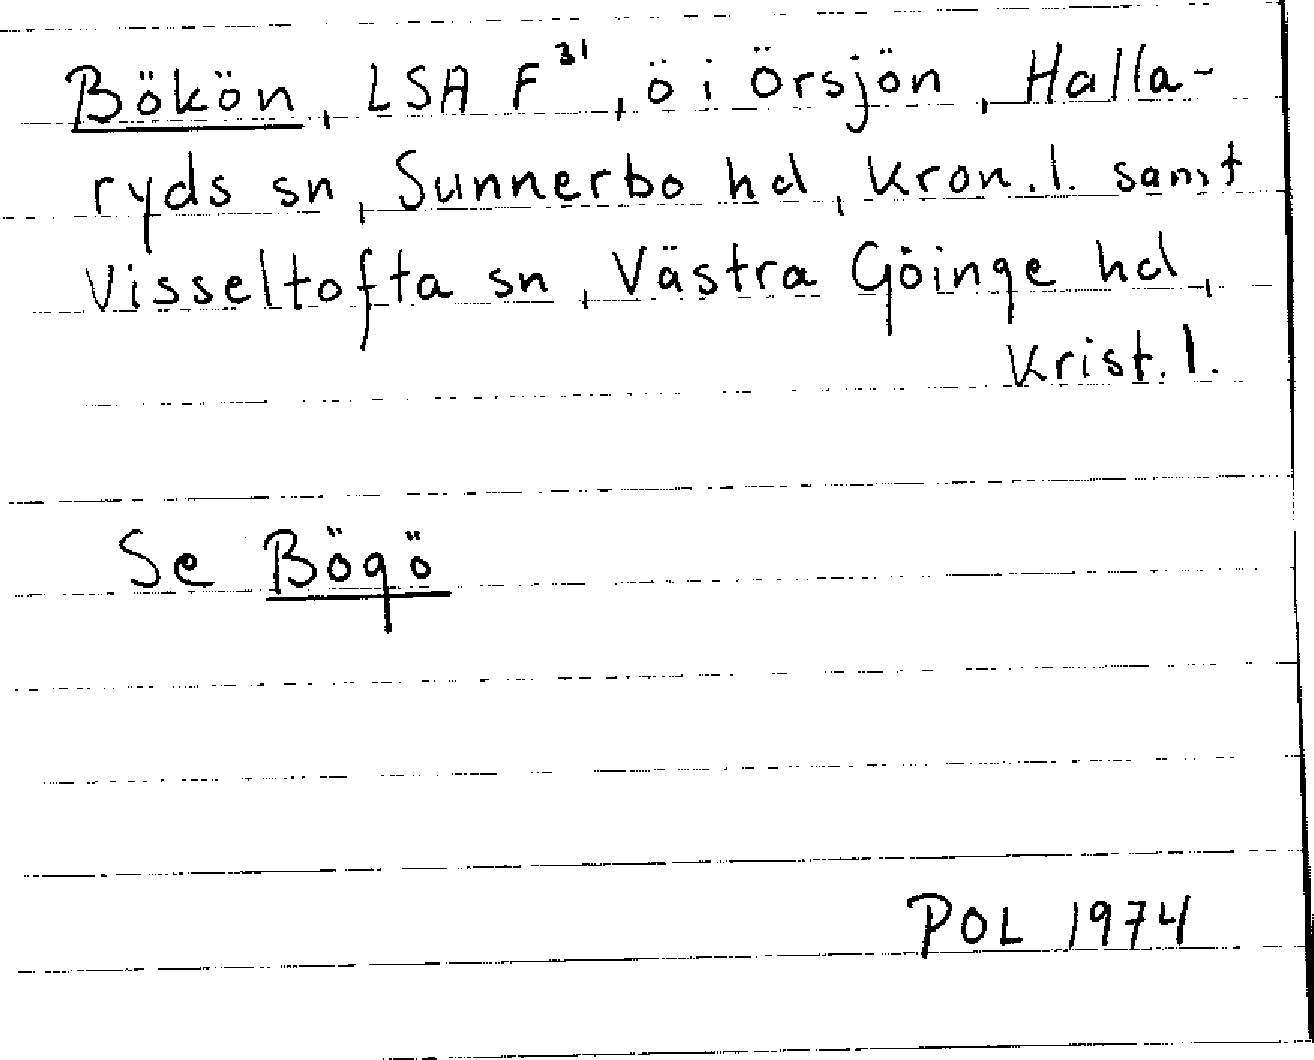 Bökön, LSA F³¹, ö i Örsjön, Halla-
ryds sn, Sunnerbo hd, Kron. l. samt
Visseltofta sn, Västra Göinge hd,
Krist. l.
Se Bögö
POL 1974